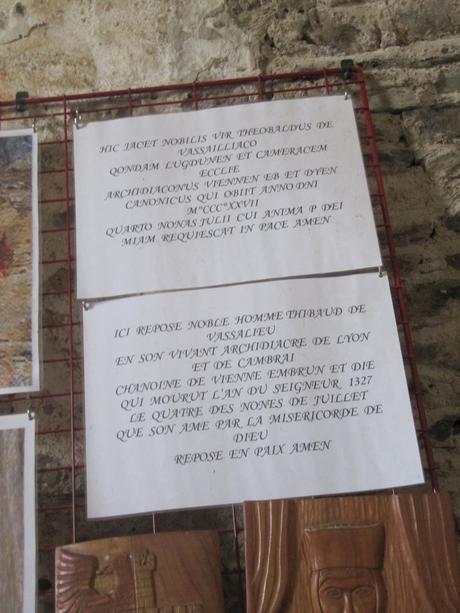 HIC JACET NOBILIS VIR THEOBALDUS DE
VASSAILLIACO
QONDAM LUGDUNEN ET CAMERACEM
ECCLIE
ARCHIDIACONUS VIENNEN EB ET DYEN
CANONICUS QUI OBIIT ANNO DNI
M°CCC°XXVII
QUARTO NONAS JULII CUI ANIMA P DEI
MIAM REQUIESCAT IN PACE AMEN
ICI REPOSE NOBLE HOMME THIBAUD DE
VASSALIEU
EN SON VIVANT ARCHIDIACRE DE LYON
ET DE CAMBRAI
CHANOINE DE VIENNE EMBRUN ET DIE
QUI MOURUT L'AN DU SEIGNEUR 1327
LE QUATRE DES NONES DE JUILLET
QUE SON AME PAR LA MISERICORDE DE
DIEU
REPOSE EN PAIX AMEN